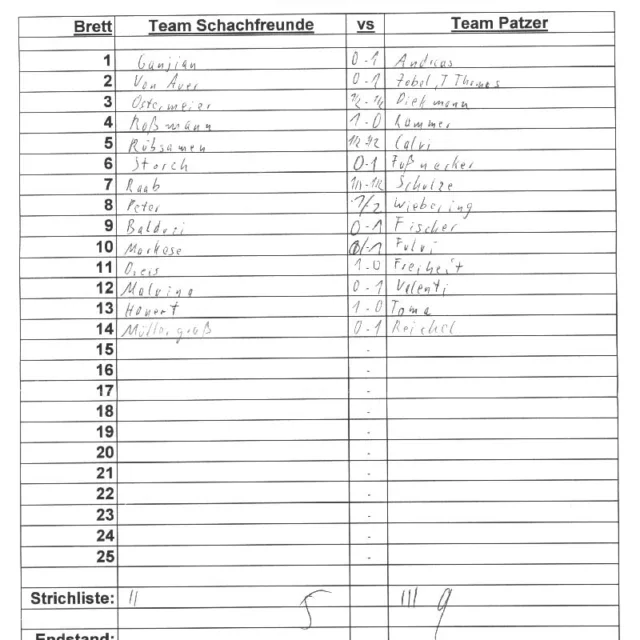 Brett Team Schachfreunde vs Team Patzer
1 Ganjian 0-1 Andreas
2 Von Auer 0-1 Zobel, T Thomas
3 Ostermeier 1/2-1/2 Diekmann
4 Roßmann 1-0 Rammer
5 Rübsamen 1/2 1/2 Calvi
6 Storch 0-1 Fußnecker
7 Raab 1/2-1/2 Schulze
8 Peter 1/2 Wiebering
9 Balduzi 0-1 Fischer
10 Markose 0-1 Fulvi
11 Dreis 1-0 Freiheit
12 Malvina 0-1 Valenti
13 Hanert 1-0 Toma
14 Müllergroß 0-1 Reichel
15 -
16 -
17 -
18 -
19 -
20 -
21 -
22 -
23 -
24 -
25 -
Strichliste: II 5 III 9
Endstand: